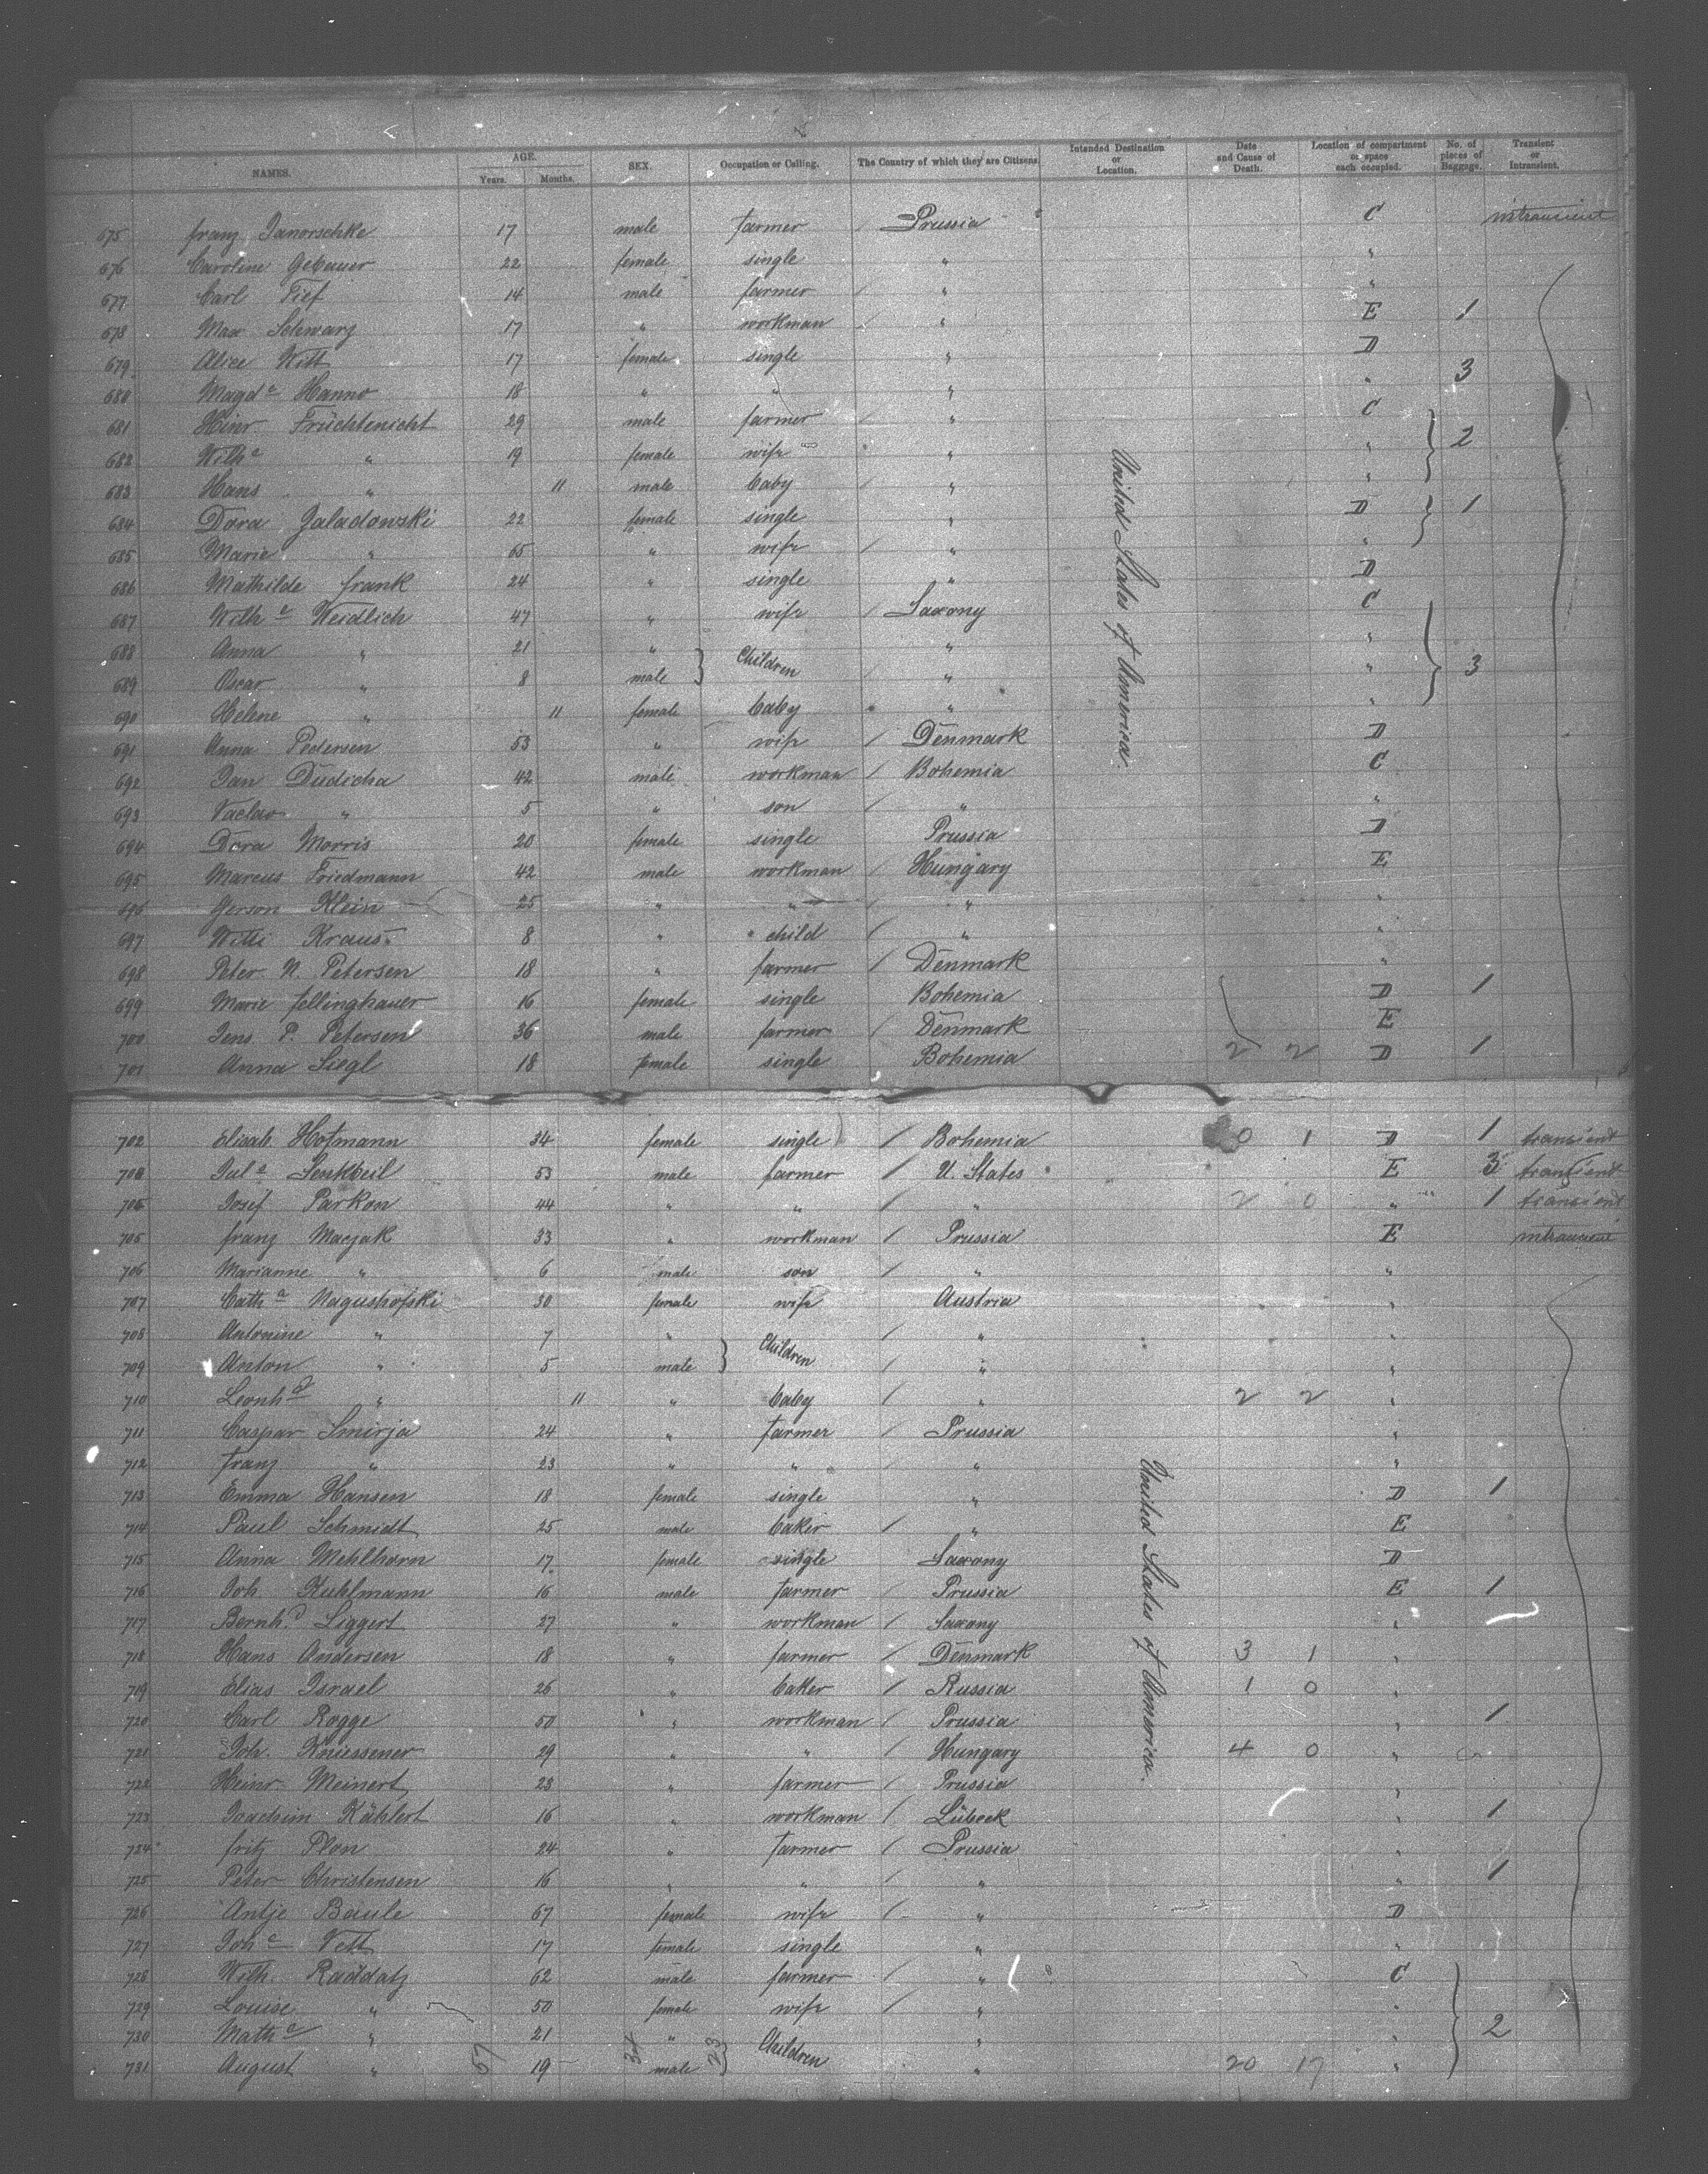 NAMES. AGE. Years. Months. SEX. Occupation or Calling. The Country of which they are Citizens. Intended Destination or Location. Date and Cause of Death. Location of compartment or space each occupied. No. of pieces of Baggage. Transient or Intransient.
675 franz Janorschke 17 male farmer Prussia C intransient
676 Caroline Gebauer 22 female single " "
677 Carl Tief 14 male farmer " "
678 Max Schwarz 17 " workman " E 1
679 Alice Witt 17 female single " D
680 Magda Hanno 18 " " " " 3
681 Hinr Früchtenicht 29 male farmer " C
682 Wilhe " 19 female wife " " 2
683 Hans " 11 male baby " "
684 Dora Galadowski 22 female single " D 1
685 Marie " 65 " wife " "
686 Mathilde frank 24 " single " D
687 Wilhe Weidlich 47 " wife Saxony C
688 Anna " 21 " Children " "
689 Oscar " 8 male " " 3
690 Helene " 11 female baby " "
691 Anna Pedersen 53 " wife Denmark D
692 Jan Dudicha 42 male workman Bohemia C
693 Vaclav " 5 " son " "
694 Dora Morris 20 female single Prussia D
695 Marcus Friedmann 42 male workman Hungary E
696 Gerson Klein 25 " " " "
697 Willi Kraus 8 " child " "
698 Peter N. Petersen 18 " farmer Denmark "
699 Marie fellinghauer 16 female single Bohemia D 1
700 Jens P. Petersen 36 male farmer Denmark E
701 Anna Siegl 18 female single Bohemia 2 2 D 1
702 Elisab. Hofmann 34 female single Bohemia 0 1 D 1 transient
703 Juls Senkbeil 53 male farmer U. States E 3 transient
705 Josef Parkon 44 " " " 2 0 " 1 transient
705 franz Maczak 33 " workman Prussia E intransient
706 Marianne " 6 male son " "
707 Catha Nagushofski 30 female wife Austria "
708 Antonine " 7 " Children " "
709 Anton " 5 male " "
710 Leonhd " 11 " baby " 2 2 "
711 Caspar Smirja 24 " farmer Prussia "
712 franz " 23 " " " "
713 Emma Hansen 18 female single " D 1
714 Paul Schmidt 25 male baker " E
715 Anna Mehlhorn 17 female single Saxony D
716 Joh. Kuhlmann 16 male farmer Prussia E 1
717 Bernhd Liggert 27 " workman Saxony "
718 Hans Andersen 18 " farmer Denmark 3 1 "
719 Elias Israel 26 " baker Russia 1 0 "
720 Carl Rogge 50 " workman Prussia " 1
721 Joh. Kniessener 29 " " Hungary 4 0 "
722 Heinr Meinert 23 " farmer Prussia "
723 Joachim Kählert 16 " workman Lübeck " 1
724 fritz Plon 24 " farmer Prussia "
725 Peter Christensen 16 " " " " 1
726 Antje Baule 67 female wife " D
727 Johe Vett 17 female single " "
728 Wilh. Raddatz 62 male farmer " C
729 Louise " 50 female wife " "
730 Mathe " 21 " Children " " 2
731 August " 19 male " 20 17 "
57 34 23
United States of America.
United States of America.